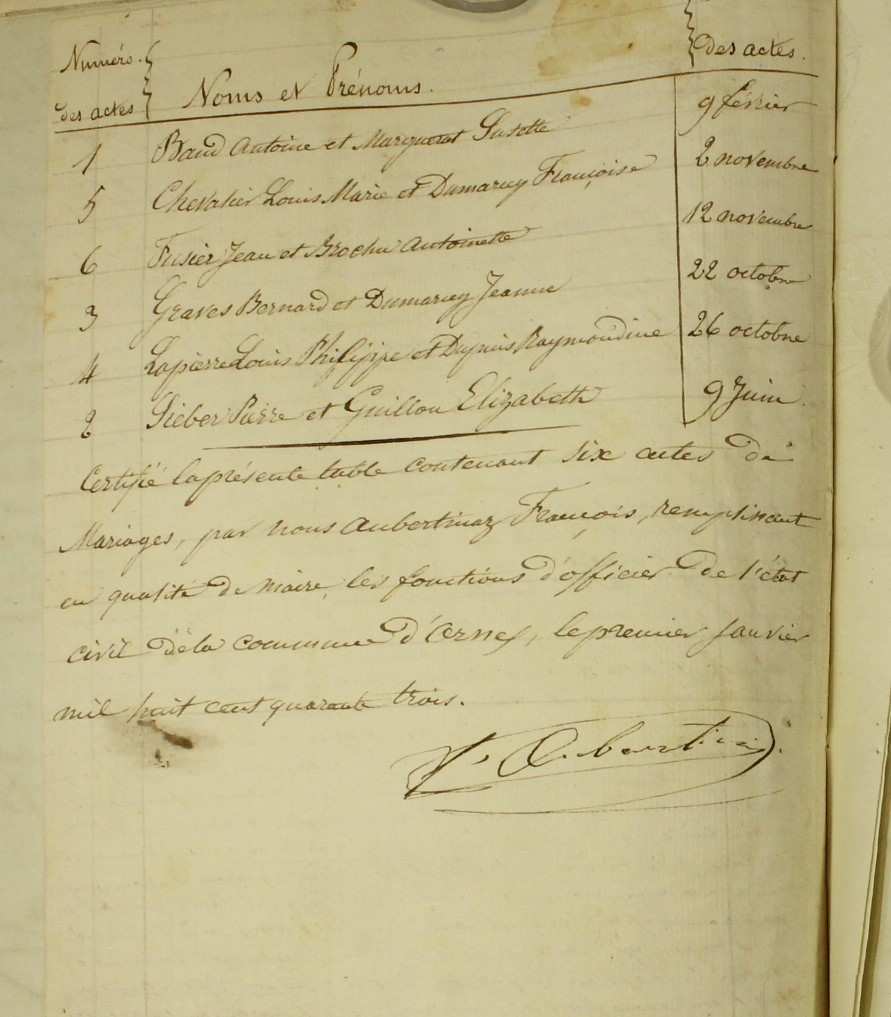 Numéro des actes | Noms et Prénoms. | des actes.
1 Baud Antoine et Marguerat Susette 9 février
5 Chevalier Louis Marie et Dumarcey Françoise 2 novembre
6 Fusier Jean et Brochu Antoinette 12 novembre
3 Graves Bernard et Dumarcey Jeanne 22 octobre
4 Lapierre Louis Philippe et Raymondine 26 octobre
2 Sieber Pierre et Guillou Elizabeth 9 Juin
Certifié la présente table contenant six actes de
Mariages, par nous François, remplissant
en qualité de Maire, les fonctions d'officier de l'état
civil de la commune d'Ornex, le premier Janvier
mil huit cent quarante trois.